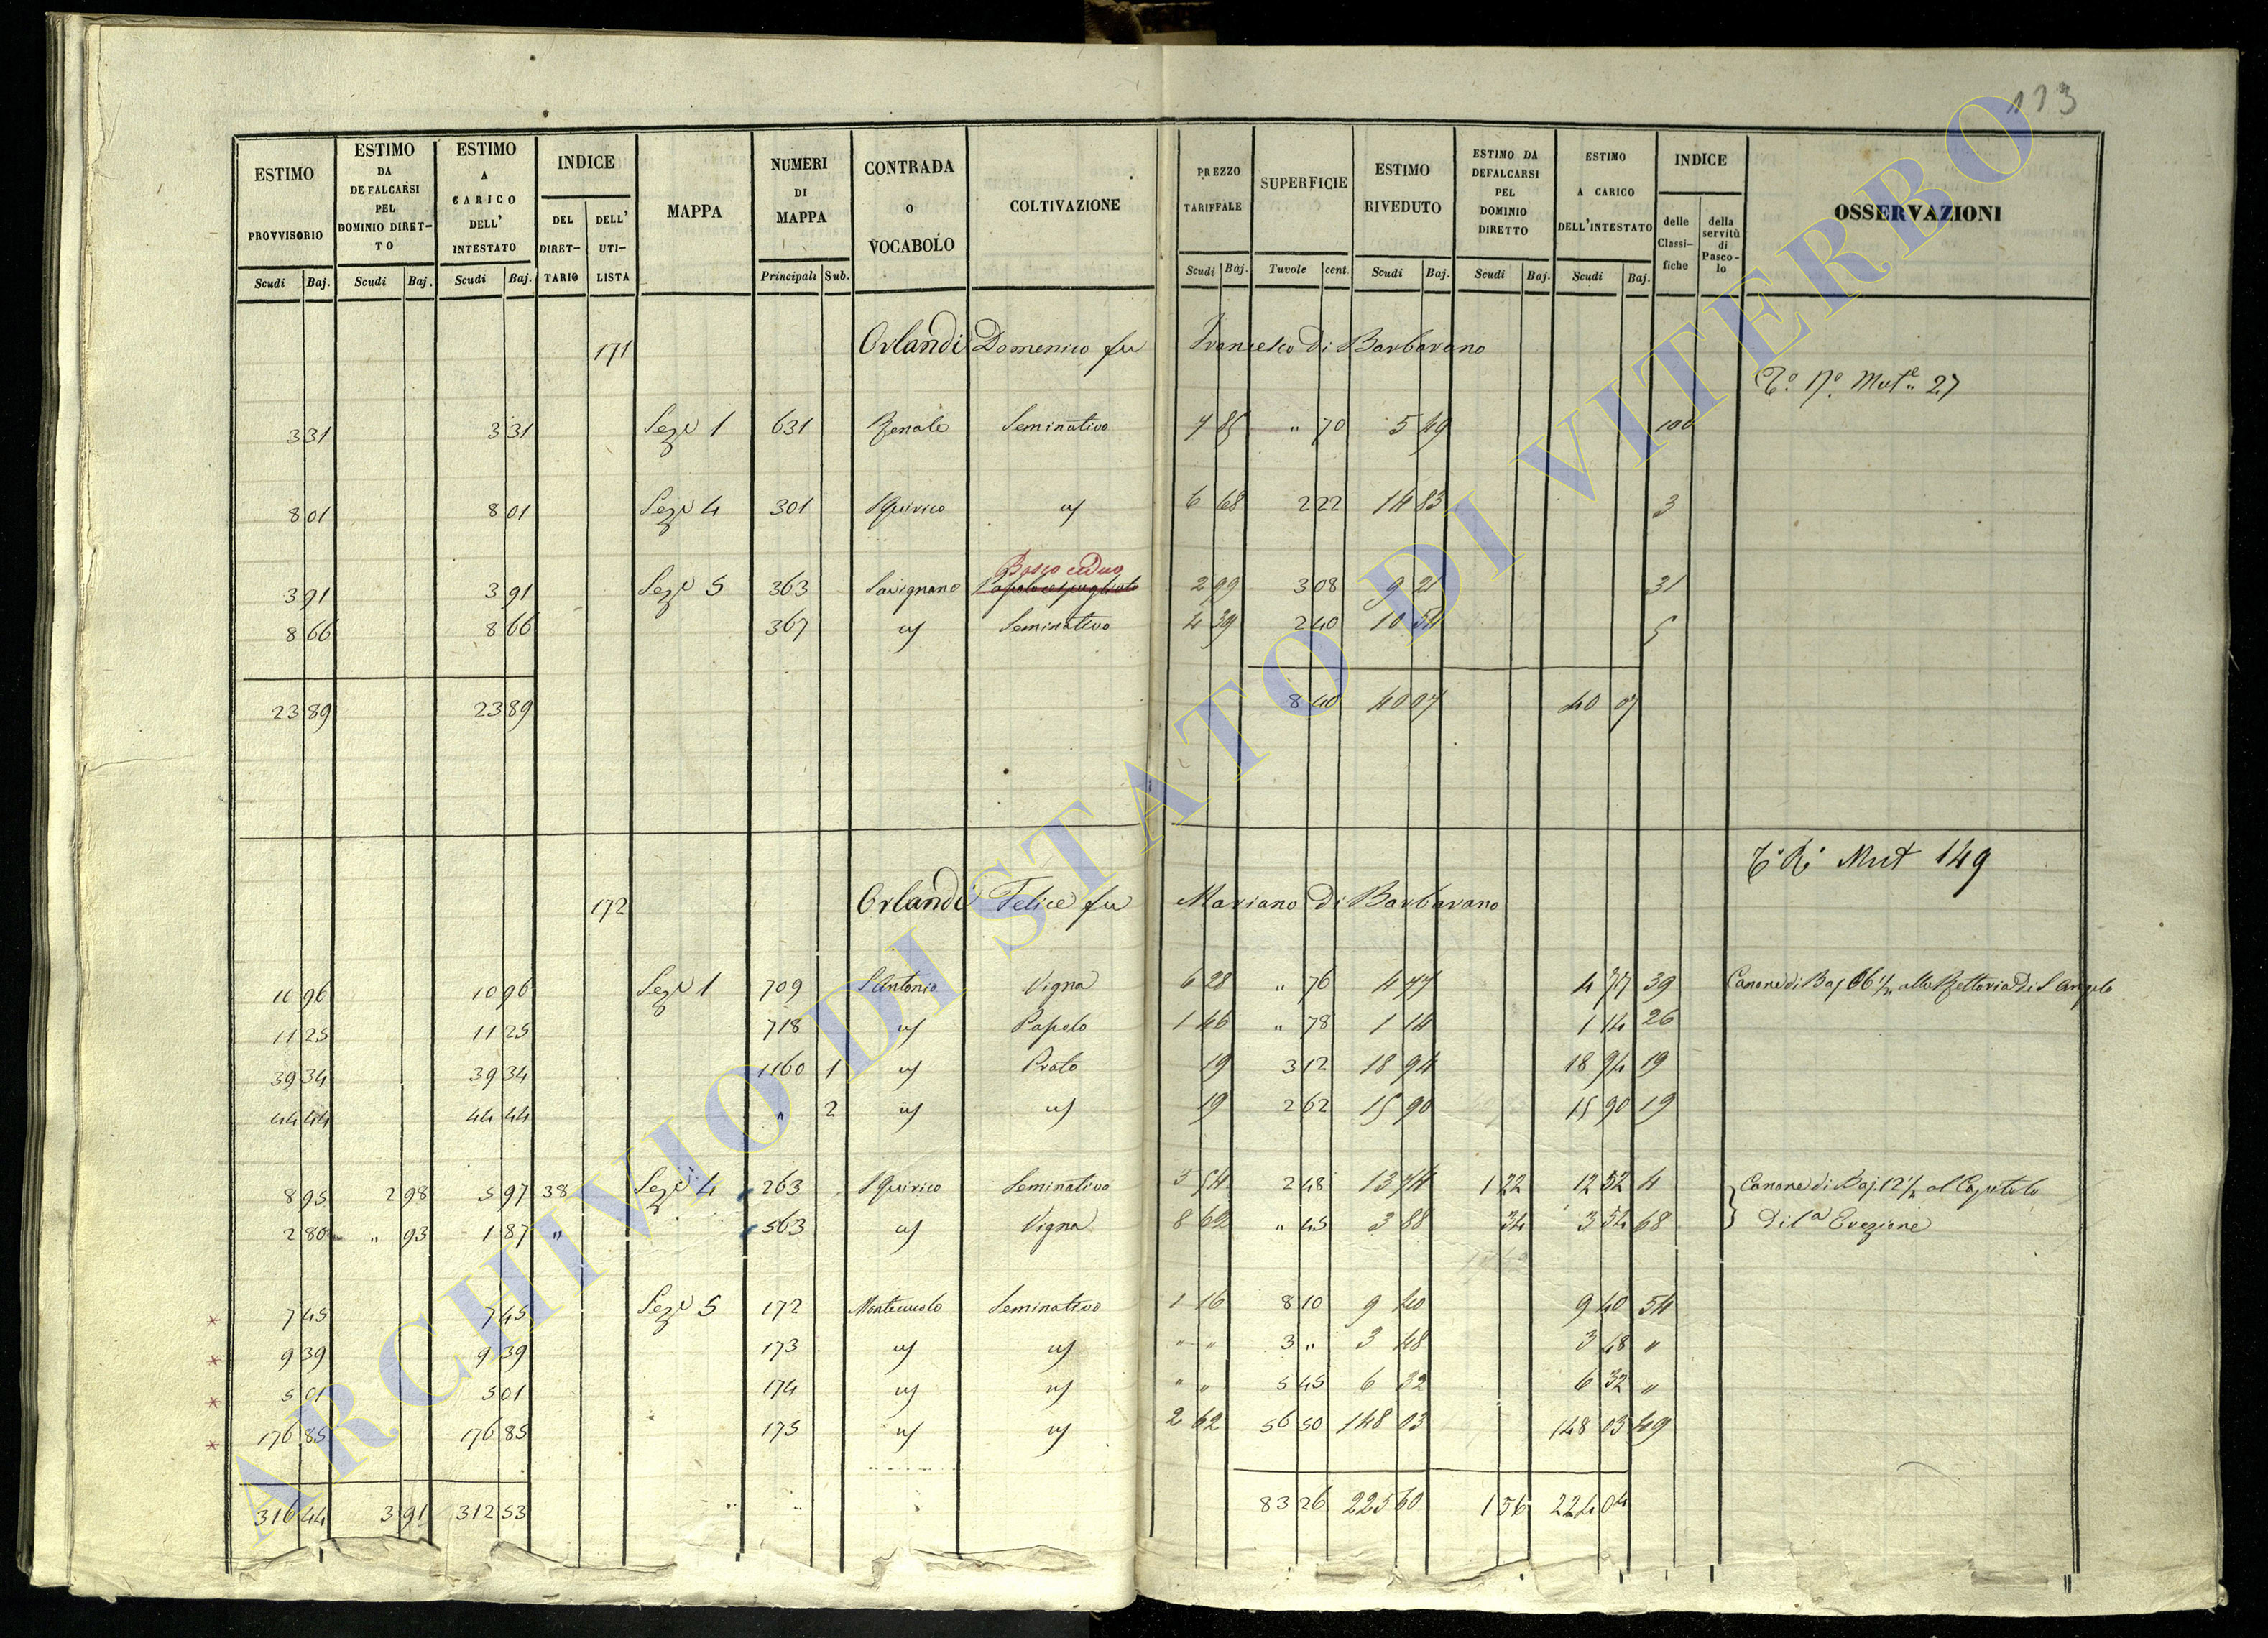 113
ESTIMO PROVVISORIO Scudi Baj. ESTIMO DA DEFALCARSI PEL DOMINIO DIRETTO Scudi Baj. ESTIMO A CARICO DELL' INTESTATO Scudi Baj. INDICE DEL DIRETTARIO DELL' UTILISTA MAPPA NUMERI DI MAPPA Principali Sub. CONTRADA O VOCABOLO COLTIVAZIONE PREZZO TARIFFALE Scudi Baj. SUPERFICIE Tavole cent. ESTIMO RIVEDUTO Scudi Baj. ESTIMO DA DEFALCARSI PEL DOMINIO DIRETTO Scudi Baj. ESTIMO A CARICO DELL'INTESTATO Scudi Baj. INDICE delle Classifiche della servitù di Pascolo OSSERVAZIONI
171 Orlandi Domenico fu Francesco di Barbarano
Mut.e 27
3 31 3 31 Sez.e 1 631 Seminativo 7 85 " 70 5 49 100
8 01 8 01 Sez.e 4 301 S Quirico uj 6 68 2 22 14 83 3
Bosco ceduo
3 91 3 91 Sez.e 5 363 Savignano 2 99 3 08 9 21 31
8 66 8 66 367 uj Seminativo 4 39 2 40 10 54 5
23 89 23 89 8 40 40 07 40 07
Mut 149
172 Orlandi Felice fu Mariano di Barbarano
10 96 10 96 Sez.e 1 709 S Antonio Vigna 6 28 " 76 4 77 4 77 39 Canone di Baj 66 ½ alla Rettoria di S Angelo
11 25 11 25 718 uj 1 46 " 78 1 14 1 14 26
39 34 39 34 1160 1 uj Prato 19 3 12 18 94 18 94 19
44 44 44 44 " 2 uj uj 19 2 62 15 90 15 90 19
8 95 2 98 5 97 38 Sez.e 4 263 S Quirico Seminativo 5 54 2 48 13 74 1 22 12 52 4 Canone di Baj. 12 ½ al Capitolo
2 80 " 93 1 87 " 563 uj Vigna 8 62 " 45 3 88 34 3 54 68 Erezione
7 45 7 45 Sez.e 5 172 Seminativo 1 16 8 10 9 40 9 40 54
9 39 9 39 173 uj uj " " 3 " 3 48 3 48 "
5 01 5 01 174 uj uj " " 5 45 6 32 6 32 "
176 85 176 85 175 uj uj 2 62 56 50 148 03 148 03 49
316 44 3 91 312 53 83 26 225 60 1 56 224 04
ARCHIVIO DI STATO DI VITERBO